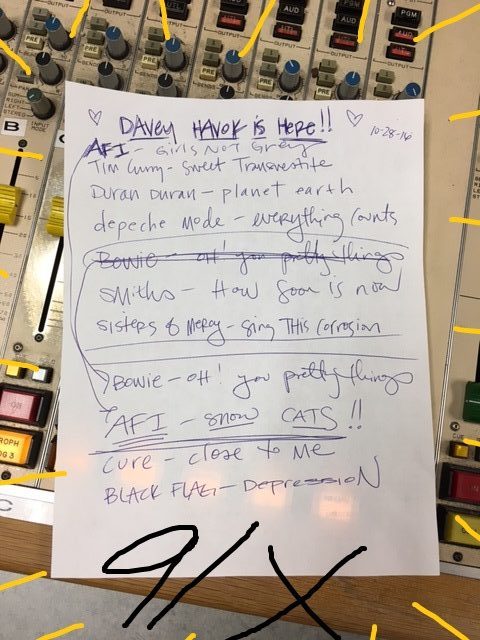 PGM
PGM
PGM
AUD
AUD
AUD
OUTPUT
OUTPUT
OUTPUT
PRE
PRE
PRE
PRE
DAVEY HAVOK is Here!!
10-28-16
AFI - Girls Not Grey
Tim Curry - Sweet Transvestite
Duran Duran - planet earth
depeche Mode - everything counts
Bowie - oh! you pretty things
smiths - How Soon is now
sisters of Mercy - sing THIS Corrosion
Bowie - oh! you pretty things
AFI - snow CATS!!
Cure - close to Me
BLACK FLAG - Depression
91X
B
C